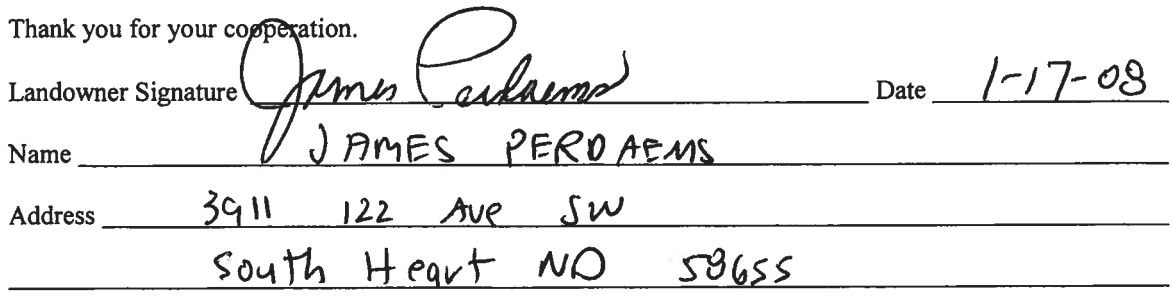 Thank you for your cooperation.
Landowner Signature James Perdaems Date 1-17-08
Name JAMES PERDAEMS
Address 3911 122 Ave SW
South Heart ND 58655